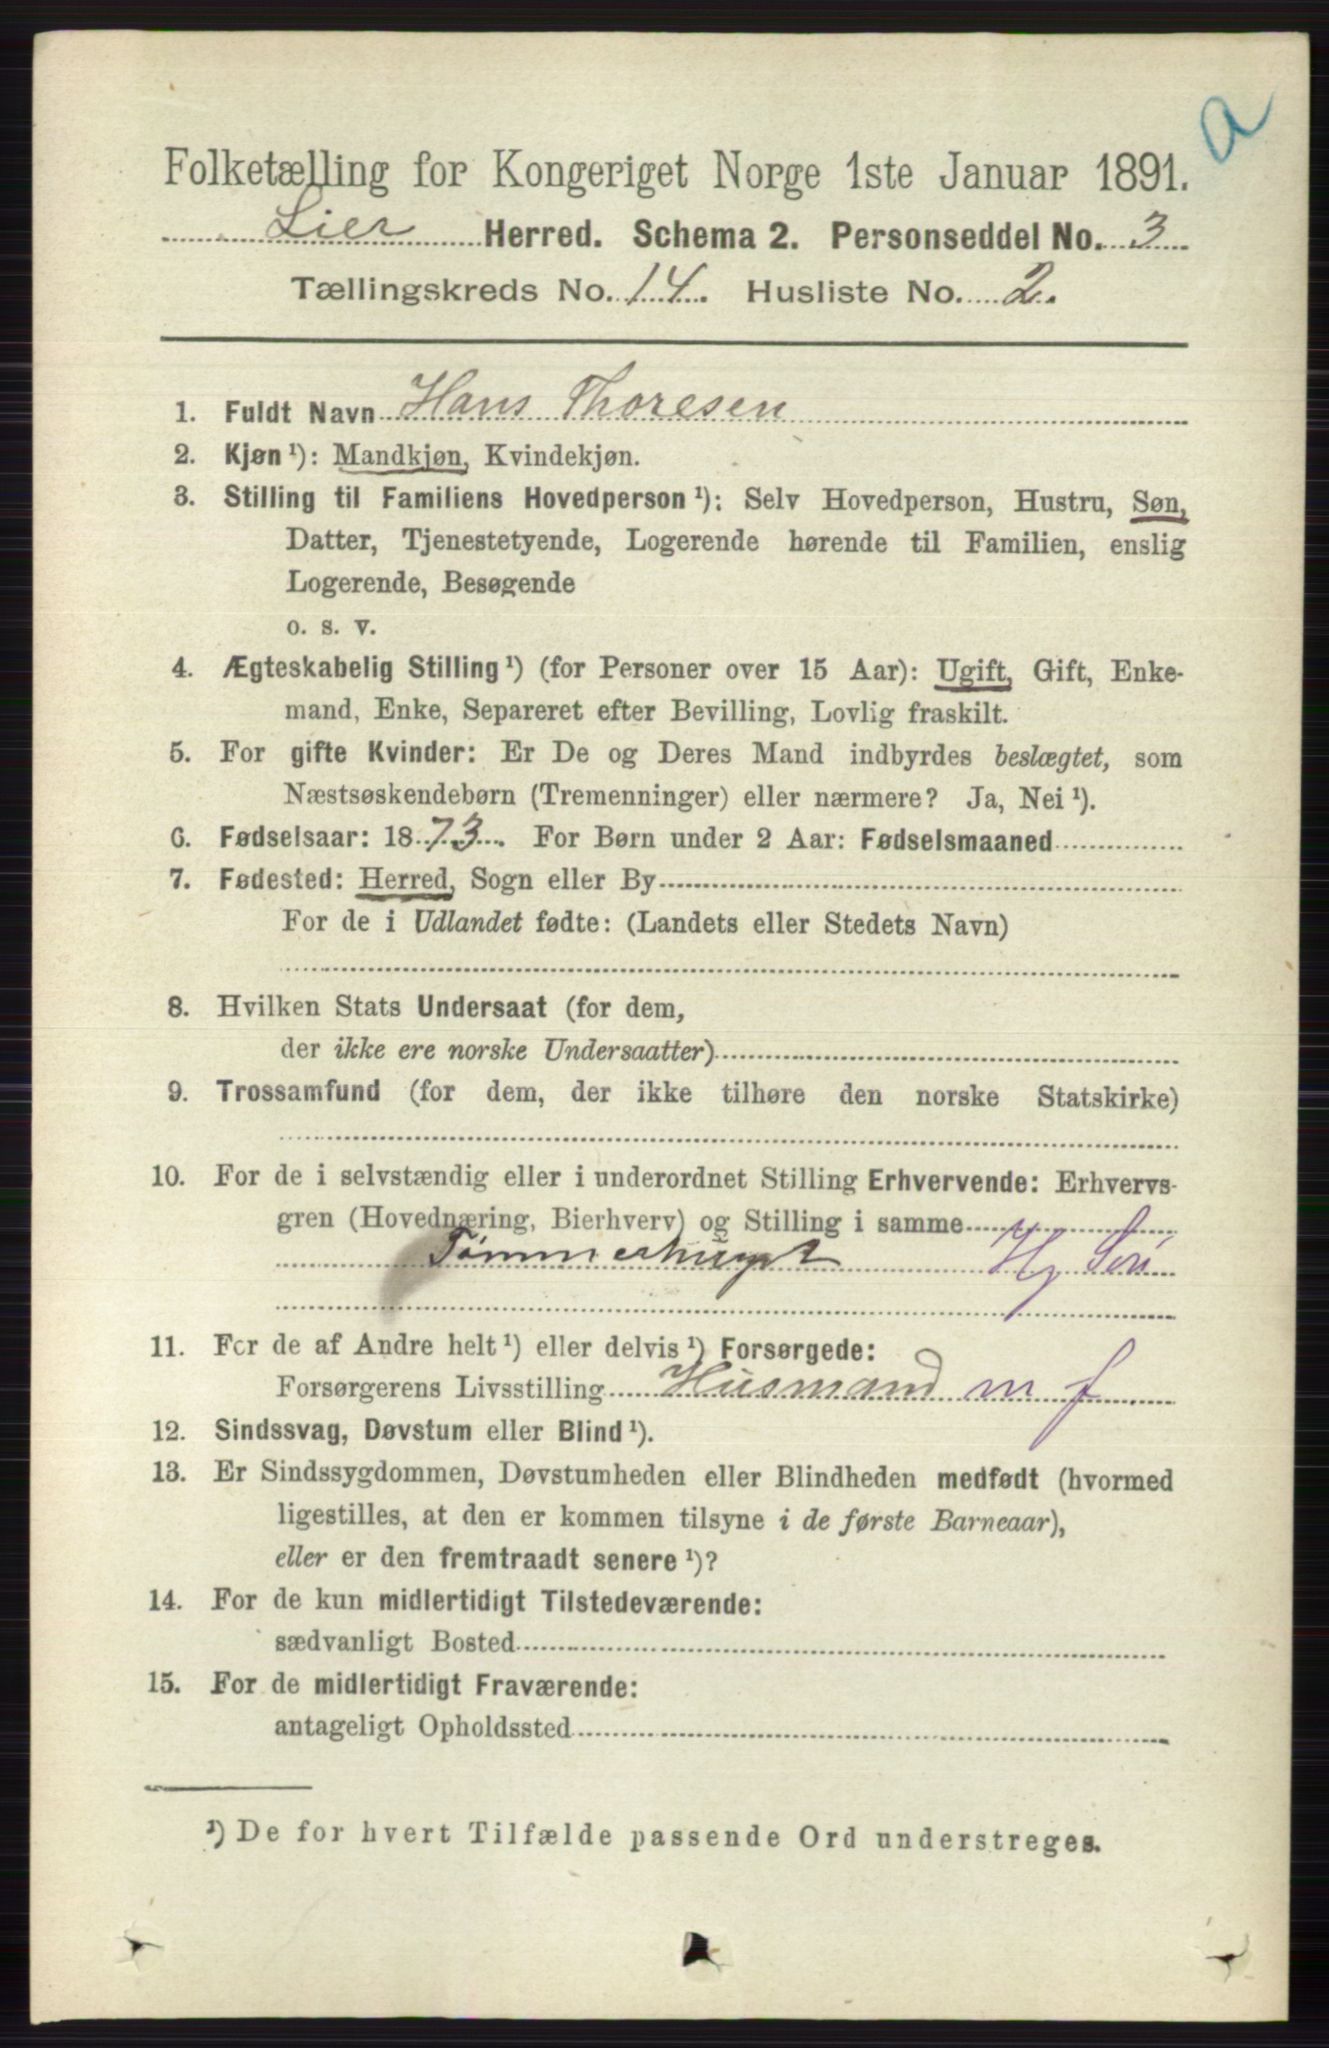 a
Folketælling for Kongeriget Norge 1ste Januar 1891.
Lier Herred. Schema 2. Personseddel No. 3
Tællingskreds No. 14. Husliste No. 2.
1. Fuldt Navn Hans Thoresen
2. Kjøn ¹): Mandkjøn, Kvindekjøn.
3. Stilling til Familiens Hovedperson ¹): Selv Hovedperson, Hustru, Søn,
Datter, Tjenestetyende, Logerende hørende til Familien, enslig
Logerende, Besøgende
o. s. v.
4. Ægteskabelig Stilling ¹) (for Personer over 15 Aar): Ugift, Gift, Enke-
mand, Enke, Separeret efter Bevilling, Lovlig fraskilt.
5. For gifte Kvinder: Er De og Deres Mand indbyrdes beslægtet, som
Næstsøskendebørn (Tremenninger) eller nærmere? Ja, Nei ¹).
6. Fødselsaar: 1873. For Børn under 2 Aar: Fødselsmaaned
7. Fødested: Herred, Sogn eller By
For de i Udlandet fødte: (Landets eller Stedets Navn)
8. Hvilken Stats Undersaat (for dem,
der ikke ere norske Undersaatter)
9. Trossamfund (for dem, der ikke tilhøre den norske Statskirke)
10. For de i selvstændig eller i underordnet Stilling Erhvervende: Erhvervs-
gren (Hovednæring, Bierhverv) og Stilling i samme
Tømmerhugst
11. For de af Andre helt ¹) eller delvis ¹) Forsørgede:
Forsørgerens Livsstilling Husmand m f
12. Sindssvag, Døvstum eller Blind ¹).
13. Er Sindssygdommen, Døvstumheden eller Blindheden medfødt (hvormed
ligestilles, at den er kommen tilsyne i de første Barneaar),
eller er den fremtraadt senere ¹)?
14. For de kun midlertidigt Tilstedeværende:
sædvanligt Bosted
15. For de midlertidigt Fraværende:
antageligt Opholdssted
¹) De for hvert Tilfælde passende Ord understreges.